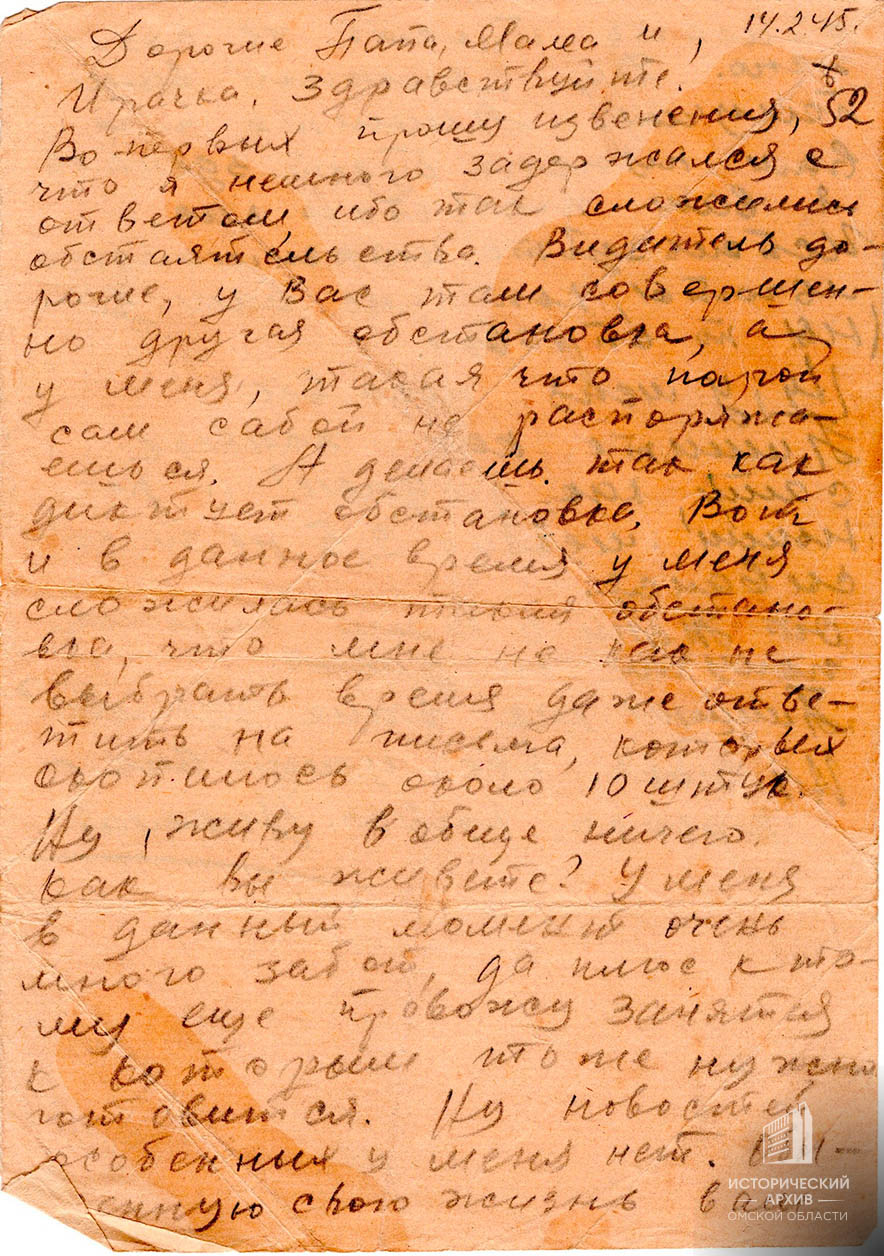 14.2.45.
Дорогие Папа, Мама и,
Ирачка, Здравствуйте.
52
Во первых прошу извенения,
что я немного задержался с
ответом, ибо так сложились
обстаятельства. Видитель до-
рогие, у Вас там совершен-
но другая обстановка, а
у меня, такая что парой
сам сабой не распоряжа-
ешься. А делаешь так как
диктует обстановка, Вот
и в данное время у меня
сложилась такая обстано-
вка, что мне не как не
выбрать время даже отве-
тить на письма, которых
скопилось около 10 штук.
Ну, живу вобще ничего.
Как вы живете? У меня
в данный момент очень
много забот, да плюс к то-
му еще провожу занятия
к которым тоже нужно
готовится. Ну новостей
особенных у меня нет.
свою жизнь вам
ИСТОРИЧЕСКИЙ
АРХИВ
ОМСКОЙ ОБЛАСТИ